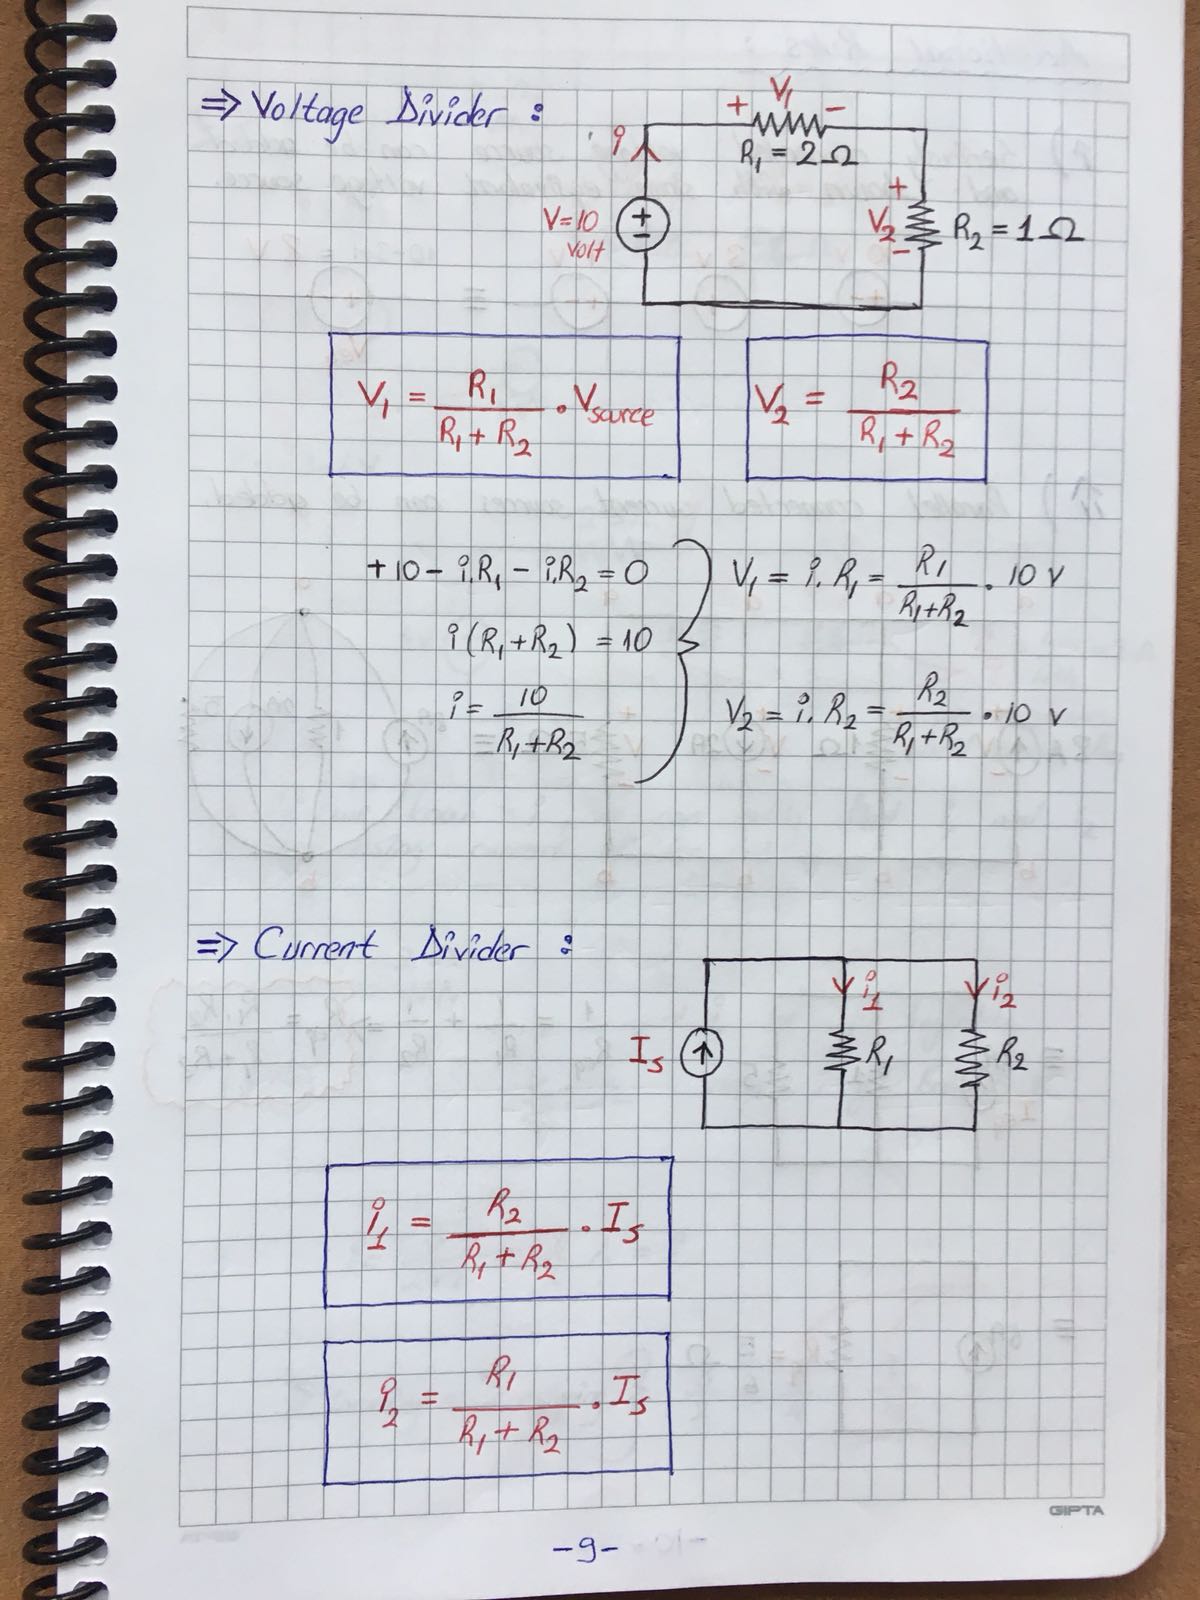 ⇒ Voltage Divider :
i
+ V₁ −
R₁ = 2Ω
V=10
volt
+
−
+
V₂
−
R₂ = 1Ω
V₁ = R₁ / (R₁ + R₂) · Vsource
V₂ = R₂ / (R₁ + R₂)
+10 − i.R₁ − i.R₂ = 0
i (R₁+R₂) = 10
i = 10 / (R₁+R₂)
V₁ = i. R₁ = R₁ / (R₁+R₂) . 10 v
V₂ = i. R₂ = R₂ / (R₁+R₂) . 10 v
⇒ Current Divider :
Is
i₁
R₁
i₂
R₂
i₁ = R₂ / (R₁ + R₂) . Is
i₂ = R₁ / (R₁ + R₂) . Is
GIPTA
-9-